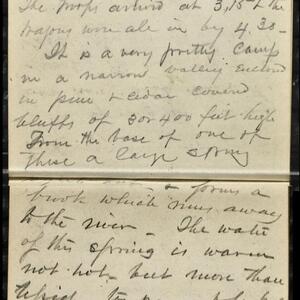 The troops arrived at 3,15 & the
wagons were all in by 4.30 -
It is a very pretty camp
in a narrow valley enclosed
in pine & cedar covered
bluffs of 3 or 400 feet high
From the base of one of
these a large spring
& forms a
brook which runs away
to the river - The water
of this spring is warm
not hot, but more than
tepid